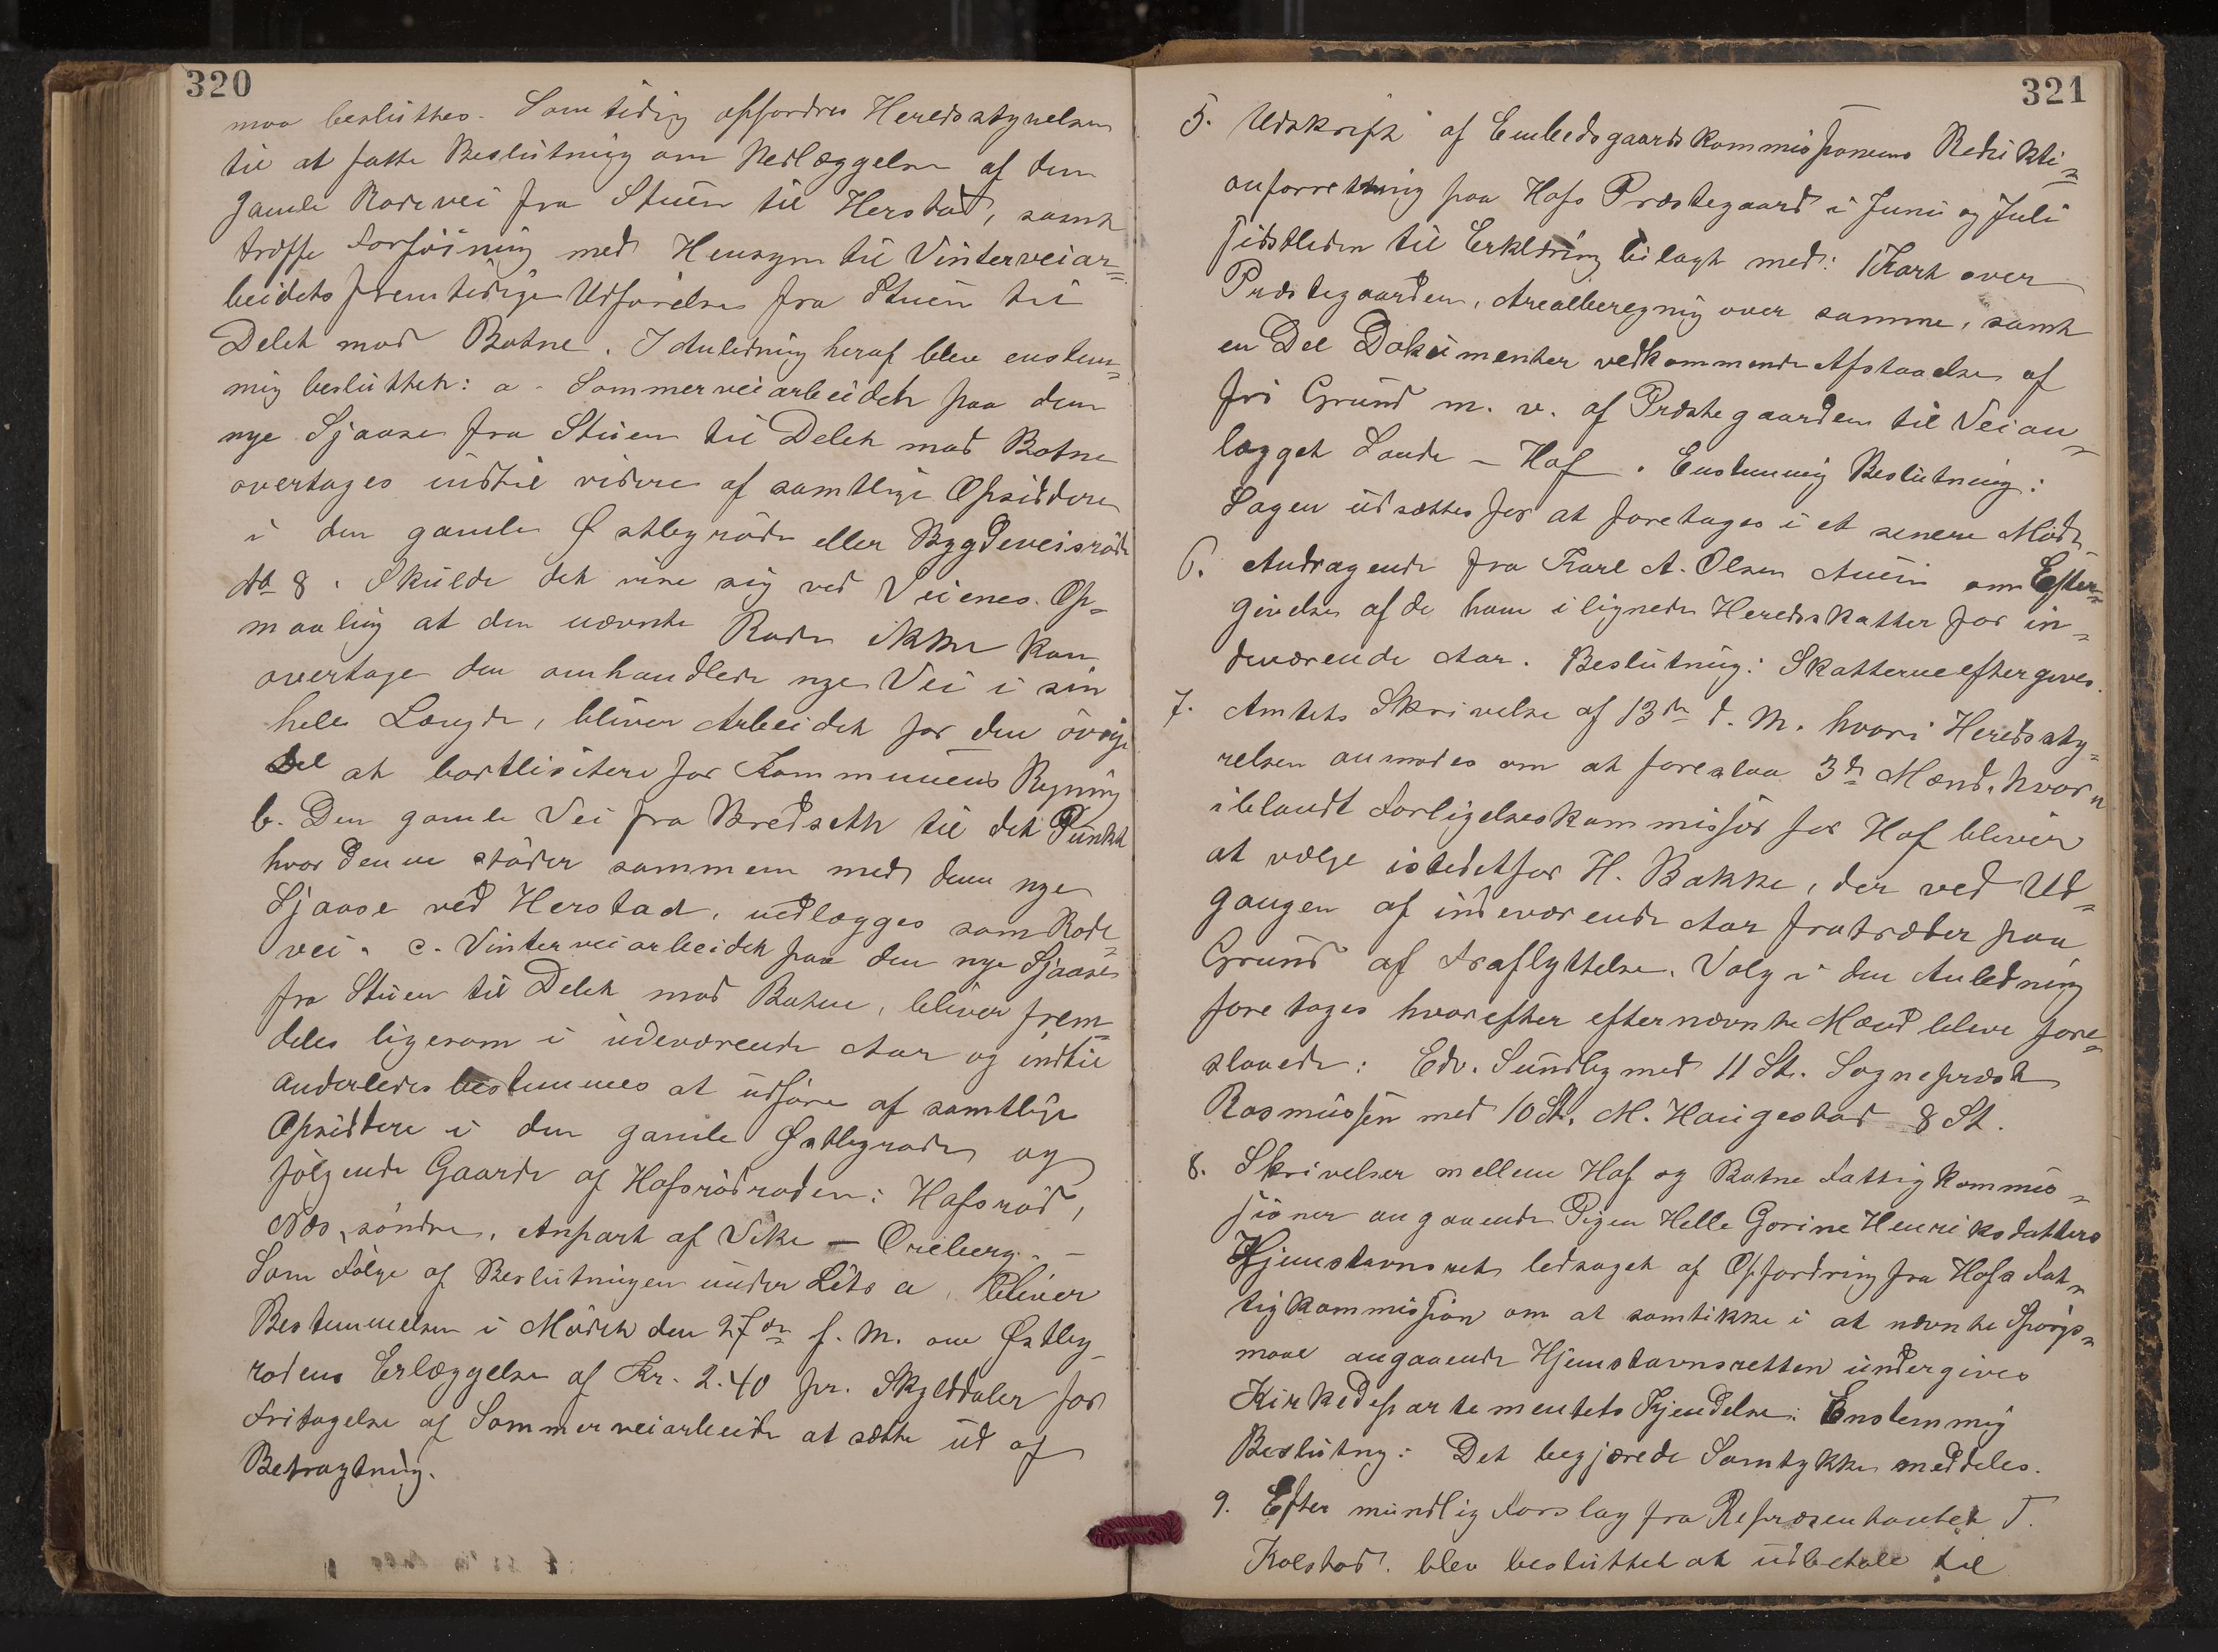 320
maa besluttes. Samtidig opfordres Heredsstyrelsen
til at fatte Beslutning om Nedlæggelse af den
gamle Rodevei fra Stuen til Herstad, samt
træffe Forföining med Hensyn til Vinterveiar=
beidets fremtidige Udförelse fra Stuen til
Delet mod Botne. I Anledning heraf blev enstem=
mig besluttet: a. Sommerveiarbeidet paa den
nye Sjaase fra Stuen til Delet mod Botne
overtages indtil videre af samtlige Opsiddere
i den gamle Østbyrode eller Bygdeveisrode
No 8. Skulde det vise sig ved Veienes Op=
maaling at den nævnte Rode ikke kan
overtage den omhandlede nye Vei i sin
hele Længde, bliver Arbeidet for den övrige
Del at bortlicitere for Kommunens Regning
b. Den gamle Vei fra Bredseth til det Punkt
hvor denne stöder sammen med den nye
Sjaase ved Herstad, nedlægges som Rode=
vei. c. Vinterveiarbeidet paa den nye Sjaase
fra Stuen til Delet mod Botne, bliver frem=
deles ligesom i indeværende Aar og indtil
anderledes bestemmes at udföre af samtlige
Opsiddere i den gamle Østbyrode og
fölgende Gaarde af Hofsrödroden: Hofsröd,
Næs söndre, Anpart af Vike – Oreberg. –
Som Fölge af Beslutningen under Litr a, bliver
Bestemmelsen i Mödet den 27de f. M. om Østby
rodens Erlæggelse af Kr. 2.40 pr. Skylddaler for
Fritagelse af Sommerveiarbeide at sætte ud af
Betragtning.
321
5. Udskrift af Embedsgaardskommissionens Redukti=
onsforretning paa Hofs Præstegaard i Juni og Juli
sidstleden til Erklæring bilagt med: 1 Kart over
Præstegaarden, Arealberegnig over samme, samt
en Del Dokumenter vedkommende Afstaaelse af
fri Grund m. v. af Præstegaarden til Veian=
lægget Sande – Hof. Enstemmig Beslutning:
Sagen udsættes for at foretages i et senere Möde
6. Andragende fra Karl A. Olsen Auen om Efter=
givelse af de ham ilignede Heredsskatter for in=
deværende Aar. Beslutning: Skatterne eftergives.
7. Amtets Skrivelse af 13de d. M. hvori Heredssty=
relsen anmodes om at foreslaa 3de Mænd, hvor=
iblandt Forligelseskommissær for Hof bliver
at vælge istedetfor H. Bakke, der ved Ud=
gangen af indeværende Aar fratræder paa
Grund af Fraflyttelse. Valg i den Anledning
foretages hvorefter efternævnte Mænd bleve fore=
slaaede: Edv. Sundby med 11 St. Sognepræst
Rasmussen med 10 St. M. Haugestad 8 St.
8. Skrivelser mellem Hof og Botne Fattigkommis=
sioner angaaende Pigen Helle Gorine Henriksdatters
Hjemstavnsret ledsaget af Opfordring fra Hofs Fat=
tigkommission om at samtikke i at nævnte Spörgs=
maal angaaende Hjemstavnsretten undergives
Kirkedepartementets Kjendelse: Enstemmig
Beslutng: Det begjærede Samtykke meddeles.
9. Efter mundlig Forslag fra Repræsentantet T.
Kolstad. blev besluttet at udbetale til